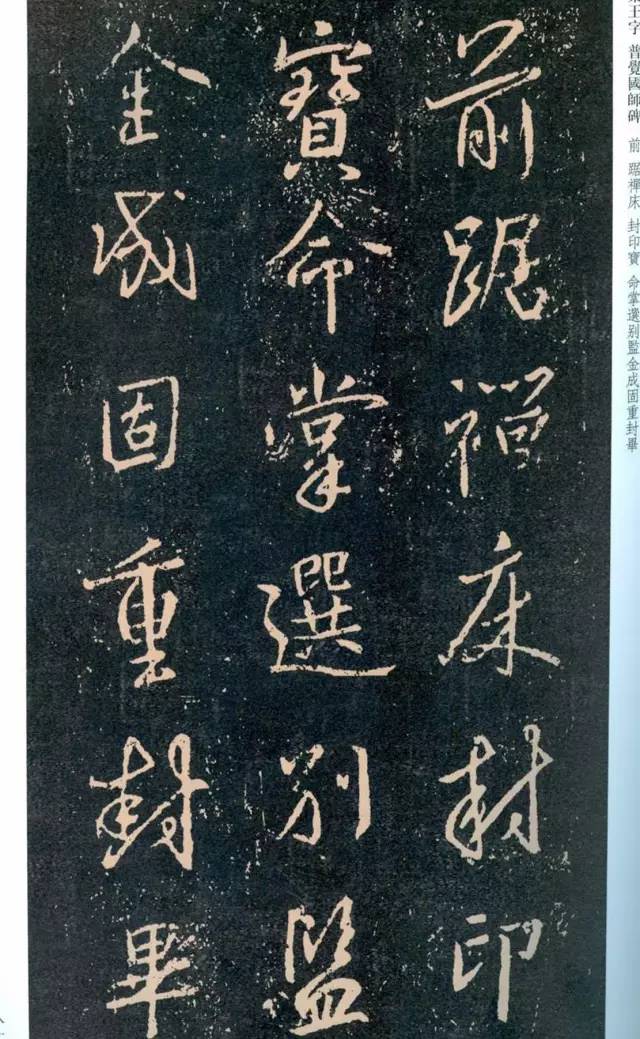 王字 普覺國師碑 前 踞禪床 封印寶 命掌選別監金成固重封畢
前踞禪床封印
寶命掌選別監
金成固重封畢